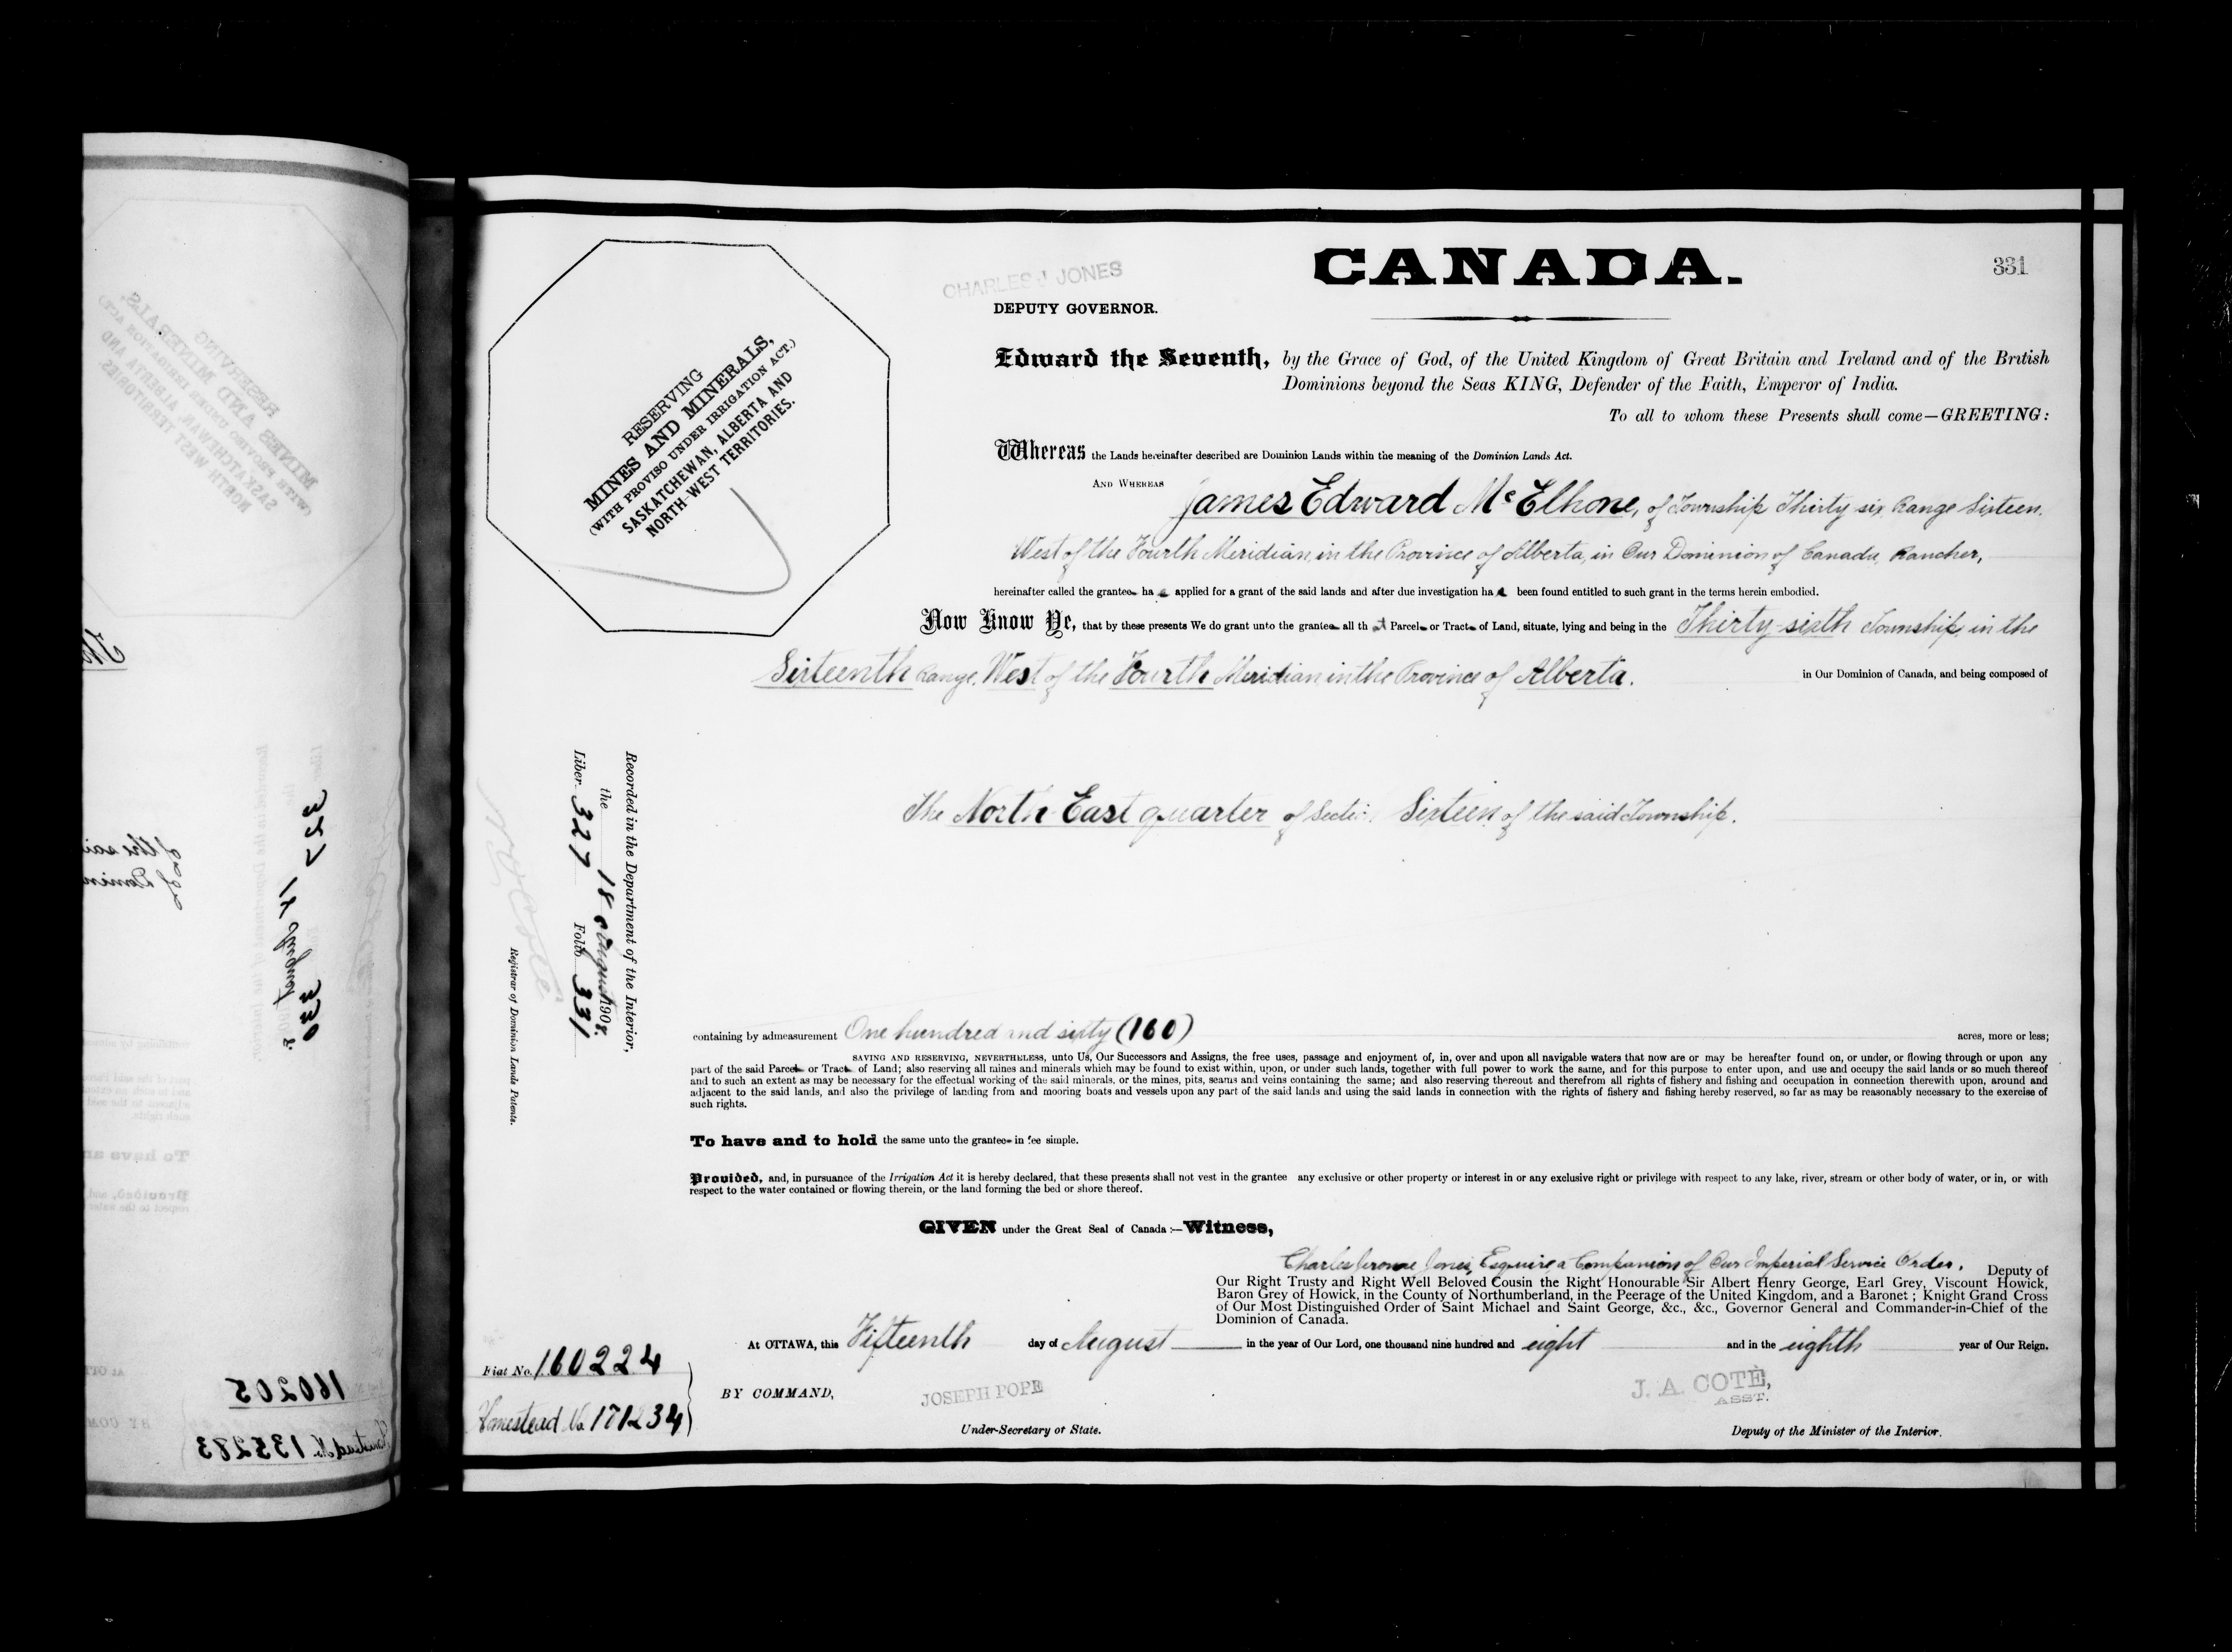 CANADA.
331
CHARLES J JONES
DEPUTY GOVERNOR.
RESERVING
MINES AND MINERALS,
(WITH PROVISO UNDER IRRIGATION ACT.)
SASKATCHEWAN, ALBERTA AND
NORTH-WEST TERRITORIES.
Edward the Seventh, by the Grace of God, of the United Kingdom of Great Britain and Ireland and of the British
Dominions beyond the Seas KING, Defender of the Faith, Emperor of India.
To all to whom these Presents shall come—GREETING:
Whereas the Lands hereinafter described are Dominion Lands within the meaning of the Dominion Lands Act.
AND WHEREAS James Edward McElhone, of Township Thirty six Range Sixteen,
West of the Fourth Meridian, in the Province of Alberta, in Our Dominion of Canada, Rancher,
hereinafter called the grantee ha s applied for a grant of the said lands and after due investigation ha s been found entitled to such grant in the terms herein embodied.
Now Know Ye, that by these presents We do grant unto the grantee all th at Parcel or Tract of Land, situate, lying and being in the Thirty-sixth Township, in the
Sixteenth Range, West of the Fourth Meridian in the Province of Alberta. in Our Dominion of Canada, and being composed of
The North East quarter of Section Sixteen of the said Township.
Recorded in the Department of the Interior,
the 18 August 1908.
Liber 327 Folio 331
Registrar of Dominion Lands Patents.
containing by admeasurement One hundred and sixty (160) acres, more or less;
SAVING AND RESERVING, NEVERTHELESS, unto Us, Our Successors and Assigns, the free uses, passage and enjoyment of, in, over and upon all navigable waters that now are or may be hereafter found on, or under, or flowing through or upon any
part of the said Parcel or Tract of Land; also reserving all mines and minerals which may be found to exist within, upon, or under such lands, together with full power to work the same, and for this purpose to enter upon, and use and occupy the said lands or so much thereof
and to such an extent as may be necessary for the effectual working of the said minerals, or the mines, pits, seams and veins containing the same; and also reserving thereout and therefrom all rights of fishery and fishing and occupation in connection therewith upon, around and
adjacent to the said lands, and also the privilege of landing from and mooring boats and vessels upon any part of the said lands and using the said lands in connection with the rights of fishery and fishing hereby reserved, so far as may be reasonably necessary to the exercise of
such rights.
To have and to hold the same unto the grantee in fee simple.
Provided, and, in pursuance of the Irrigation Act it is hereby declared, that these presents shall not vest in the grantee any exclusive or other property or interest in or any exclusive right or privilege with respect to any lake, river, stream or other body of water, or in, or with
respect to the water contained or flowing therein, or the land forming the bed or shore thereof.
GIVEN under the Great Seal of Canada :—Witness,
Charles Jerome Jones, Esquire, a Companion of Our Imperial Service Order, Deputy of
Our Right Trusty and Right Well Beloved Cousin the Right Honourable Sir Albert Henry George, Earl Grey, Viscount Howick,
Baron Grey of Howick, in the County of Northumberland, in the Peerage of the United Kingdom, and a Baronet ; Knight Grand Cross
of Our Most Distinguished Order of Saint Michael and Saint George, &c., &c., Governor General and Commander-in-Chief of the
Dominion of Canada.
At OTTAWA, this Fifteenth day of August in the year of Our Lord, one thousand nine hundred and eight and in the eighth year of Our Reign.
Fiat No. 160224
Homestead No. 171234
BY COMMAND,
JOSEPH POPE
Under-Secretary of State.
J. A. COTÈ,
ASST.
Deputy of the Minister of the Interior.